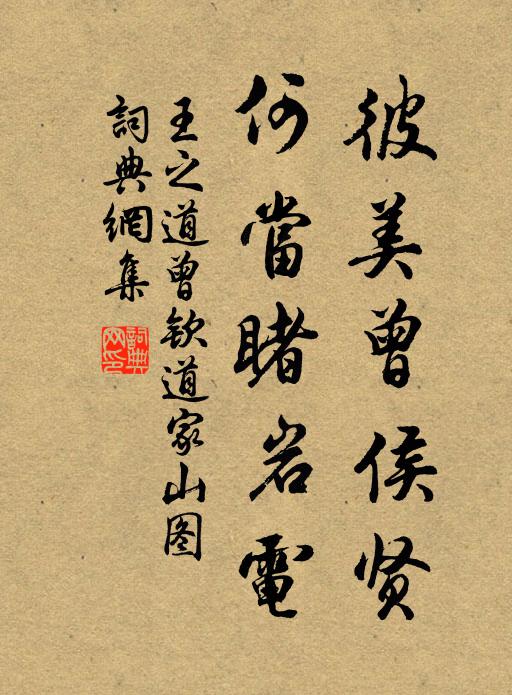 彼美曾侯贤
何當睹岩電
王之道曾欽道家山图
詞典網集
詞典网印